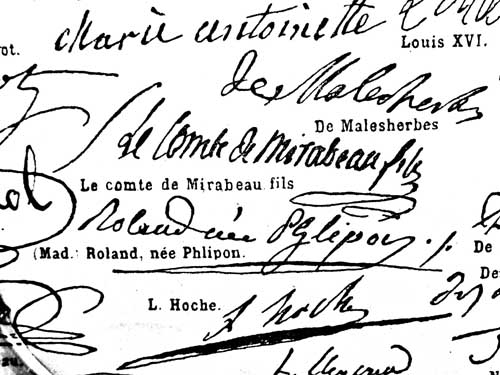 Marie antoinette
ot.
Louis XVI.
de Malesherbes
De Malesherbes
Le Comte de Mirabeau fils
Le comte de Mirabeau fils
Roland née Phlipon
(Mad. Roland, née Phlipon.
De
De
L. Hoche.
L Hoche